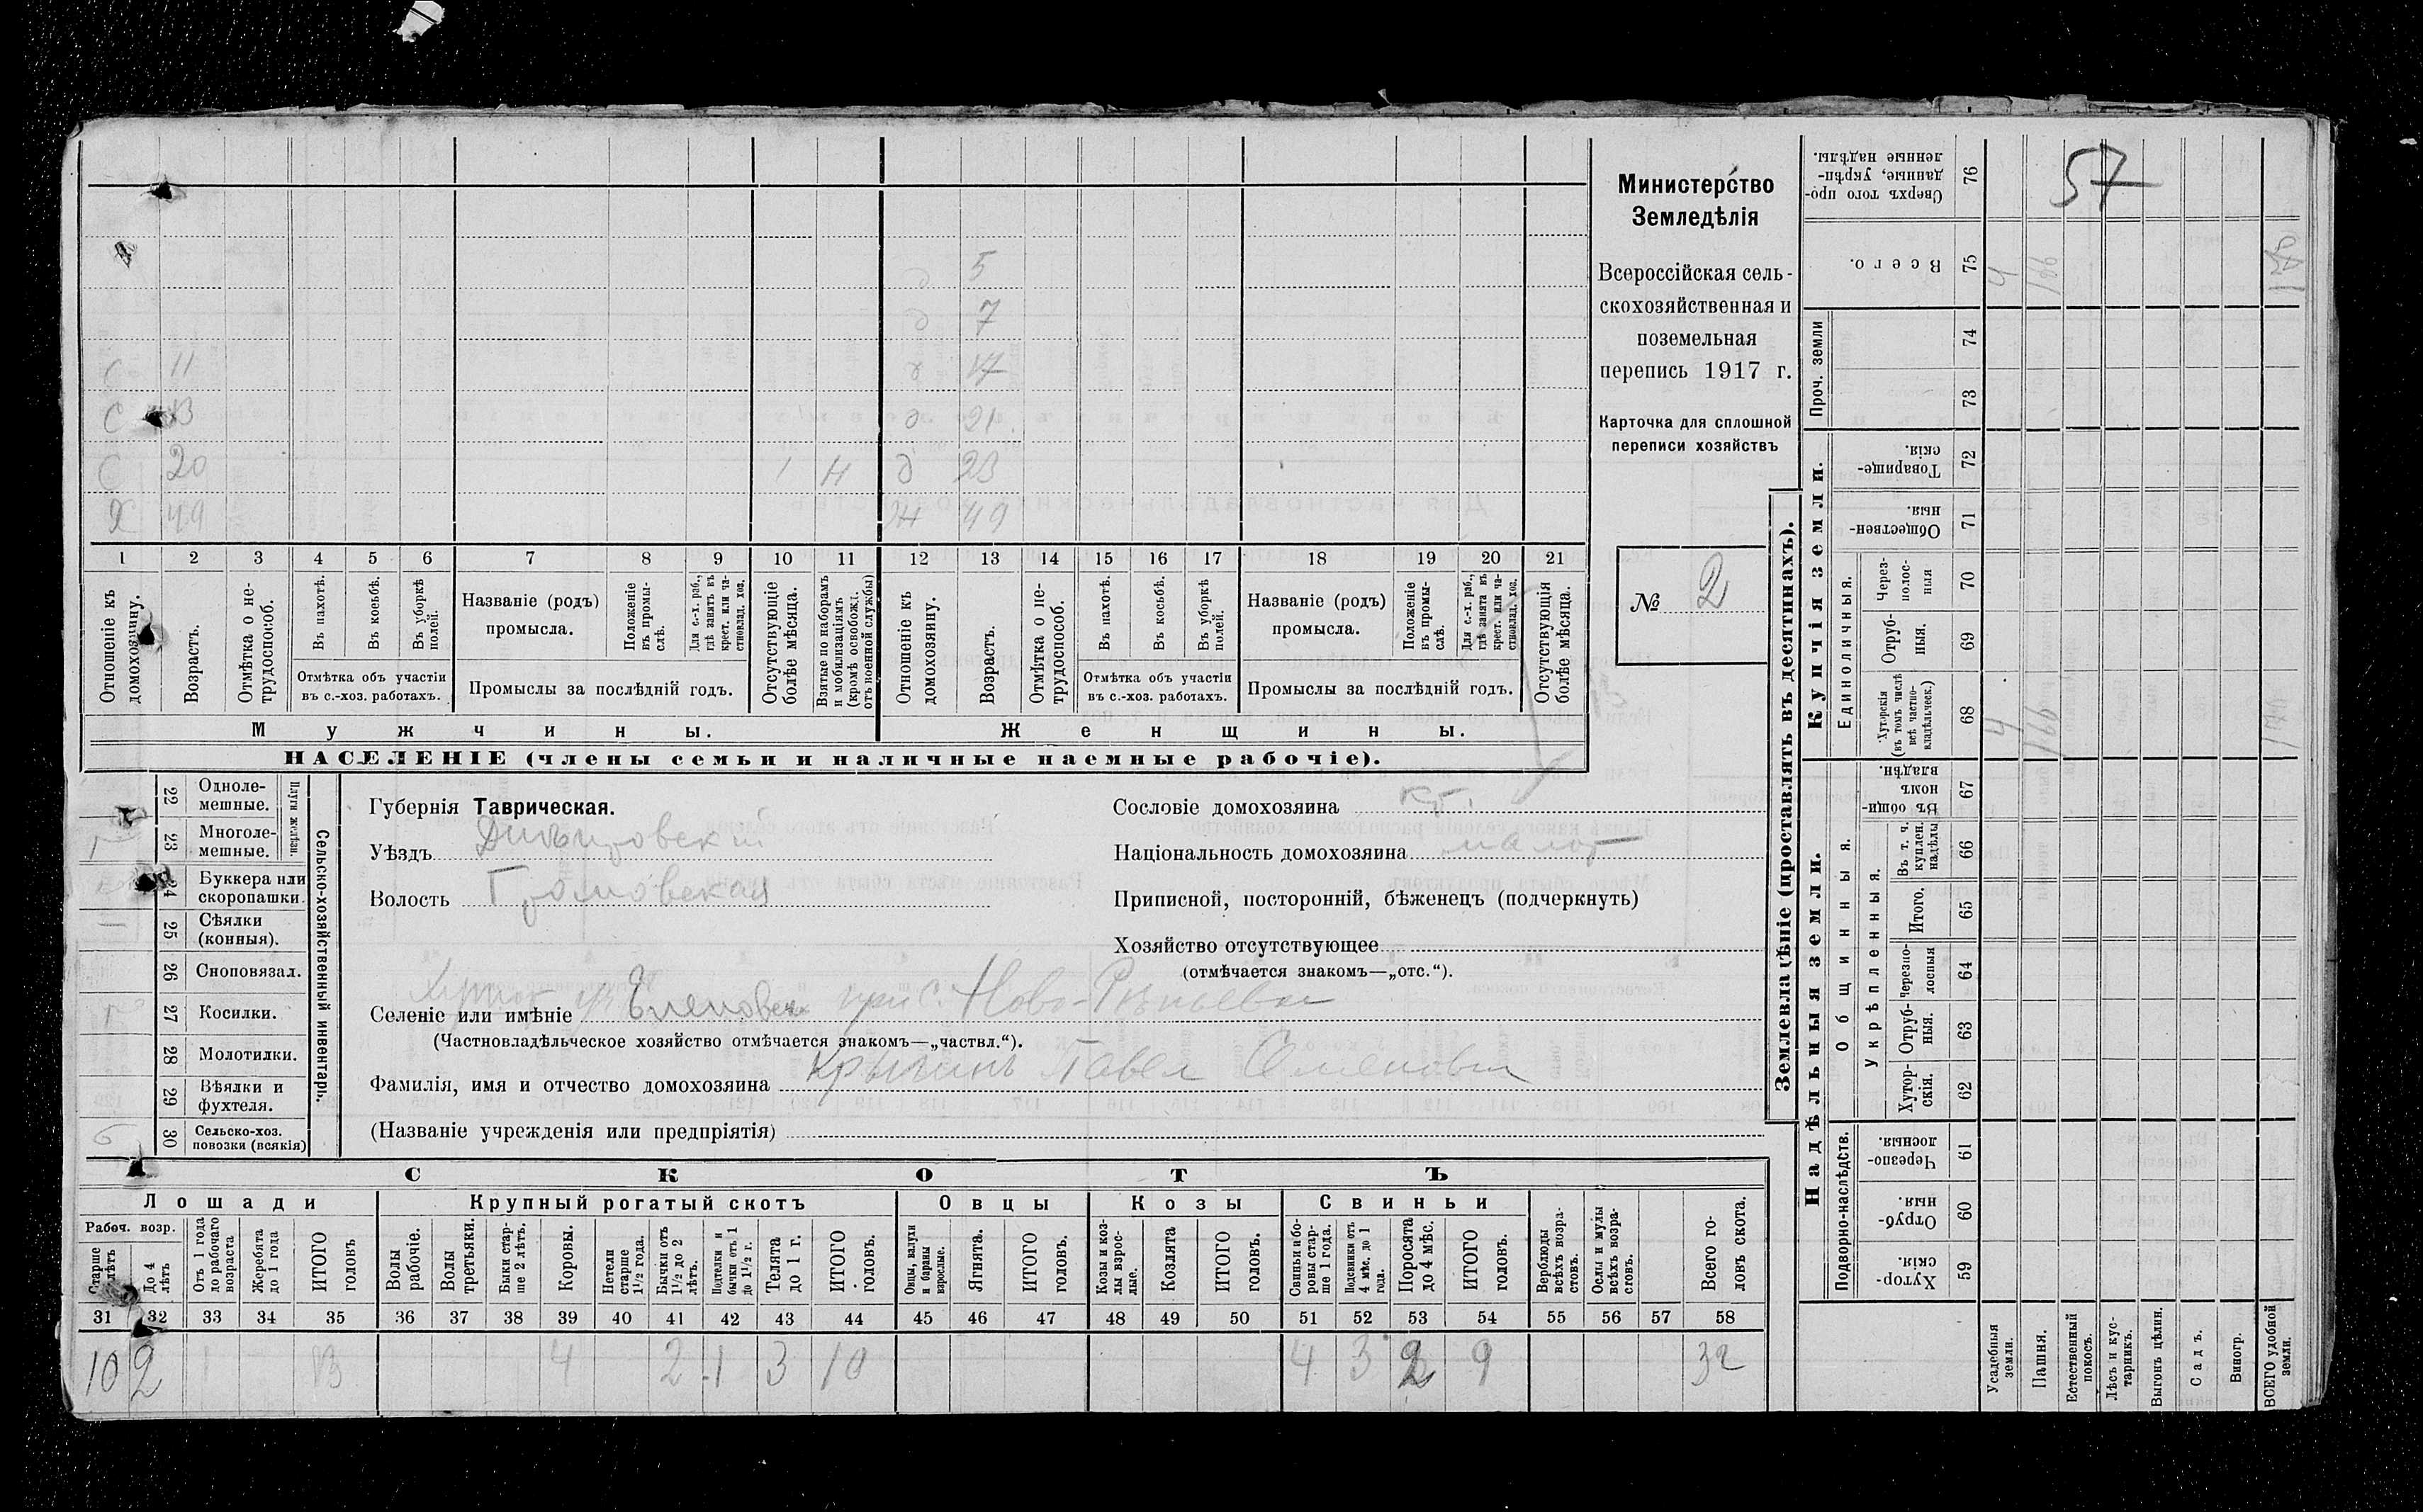 57
Министерство
Земледѣлія
Всероссійская сель-
скохозяйственная и
поземельная
перепись 1917 г.
Карточка для сплошной
переписи хозяйствъ
№ 2
5
7
С 11 17
С 13 д 21
С 20 1 Н д 23
Х 49 Ж 49
1 2 3 4 5 6 7 8 9 10 11 12 13 14 15 16 17 18 19 20 21
Отношеніе къ домохозяину.
Возрастъ.
Отмѣтка о не-трудоспособ.
Въ пахотѣ.
Въ косьбѣ.
Въ уборкѣ полей.
Отмѣтка объ участіи
въ с.-хоз. работахъ.
Названіе (родъ)
промысла.
Положеніе въ промы-слѣ.
Для с.-х. раб., гдѣ занятъ въ крест. или ча-стновлад. хоз.
Промыслы за послѣдній годъ.
Отсутствующіе болѣе мѣсяца.
Взятые по наборамъ и мобилизаціямъ (кромѣ освобожд. отъ военной службы)
Отношеніе къ домохозяину.
Возрастъ.
Отмѣтка о не-трудоспособ.
Въ пахотѣ.
Въ косьбѣ.
Въ уборкѣ полей.
Отмѣтка объ участіи
въ с.-хоз. работахъ.
Названіе (родъ)
промысла.
Положеніе въ промы-слѣ.
Для с.-х. раб., гдѣ занята въ крест. или ча-стновлад. хоз.
Промыслы за послѣдній годъ.
Отсутствующія болѣе мѣсяца.
Мужчины. Женщины.
НАСЕЛЕНІЕ (члены семьи и наличные наемные рабочіе).
Сельско-хозяйственный инвентарь.
Плуги желѣзн.
22 Одноле-мешные.
23 Многоле-мешные.
24 Буккера или скоропашки.
25 Сѣялки (конныя).
26 Сноповязал.
27 Косилки.
28 Молотилки.
29 Вѣялки и фухтеля.
30 Сельско-хоз. повозки (всякія)
Губернія Таврическая.
Уѣздъ
Волость Громовская
Селеніе или имѣніе Хутор
(Частновладѣльческое хозяйство отмѣчается знакомъ—„частвл.“).
Фамилія, имя и отчество домохозяина Павел Семенович
(Названіе учрежденія или предпріятія)
Сословіе домохозяина кр.
Національность домохозяина малор
Приписной, посторонній, бѣженецъ (подчеркнуть)
Хозяйство отсутствующее
(отмѣчается знакомъ—„отс.“).
СКОТЪ
Лошади Крупный рогатый скотъ Овцы Козы Свиньи
Рабоч. возр.
Старше лѣтъ
До 4 лѣтъ
Отъ 1 года до рабочаго возраста
Жеребята до 1 года
ИТОГО головъ
Волы рабочіе.
Волы третьяки.
Быки стар-ше 2 лѣтъ.
Коровы.
Нетели старше 1 1/2 года.
Бычки отъ 1 1/2 до 2 лѣтъ.
Подтелки и бычки отъ 1 до 1 1/2 г.
Телята до 1 г.
ИТОГО головъ.
Овцы, валухи и бараны взрослые.
Ягнята.
ИТОГО головъ.
Козы и коз-лы взрос-лые.
Козлята
ИТОГО головъ.
Свиньи и бо-ровы стар-ше 1 года.
Подсвинки отъ 4 мѣс. до 1 года.
Поросята до 4 мѣс.
ИТОГО головъ.
Верблюды всѣхъ возра-стовъ.
Ослы и мулы всѣхъ возра-стовъ.
Всего го-ловъ скота.
31 32 33 34 35 36 37 38 39 40 41 42 43 44 45 46 47 48 49 50 51 52 53 54 55 56 57 58
10 2 1 13 4 2 1 3 10 4 3 2 9 32
Землевладѣніе (проставлять въ десятинахъ).
Купчія земли.
Надѣльныя земли.
Сверхъ того про-данные, укрѣп-ленные надѣлы. 76
Всего. 75 4 166
Проч. земли 74
73
Товарище-скія. 72
Обществен-ныя. 71
Единоличныя.
Через-полос-ныя 70
Отруб-ныя. 69
Хуторскія (въ томъ числѣ всѣ частно-владѣльческ.) 68 4 166
Общинныя.
Въ общин-номъ владѣн. 67
Укрѣпленныя.
Въ т. ч. куплен. надѣлы 66
Итого. 65
Черезпо-лосныя 64
Отруб-ныя. 63
Хутор-скія. 62
Подворно-наслѣдств.
Черезпо-лосныя. 61
Отруб-ныя. 60
Хутор-скія. 59
Усадебныя земли.
Пашня.
Естественный покосъ.
Лѣсъ и кус-тарникъ.
Выгонъ цѣлин.
Садъ.
Виногр.
ВСЕГО удобной земли.